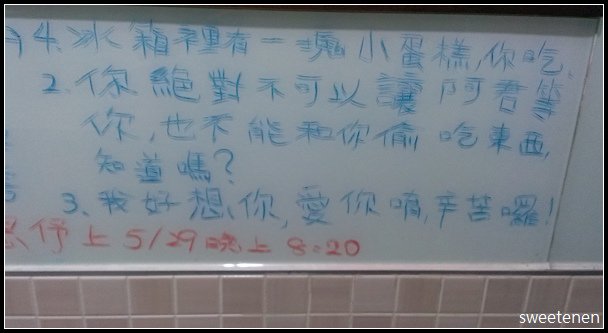 4.冰箱裡有一塊小蛋糕,你吃
2.你絕對不可以讓阿君等
你,也不能和你偷吃東西,
知道嗎?
3.我好想你,愛你唷,辛苦囉!
伃上 5/29晚上 8:20
sweetenen